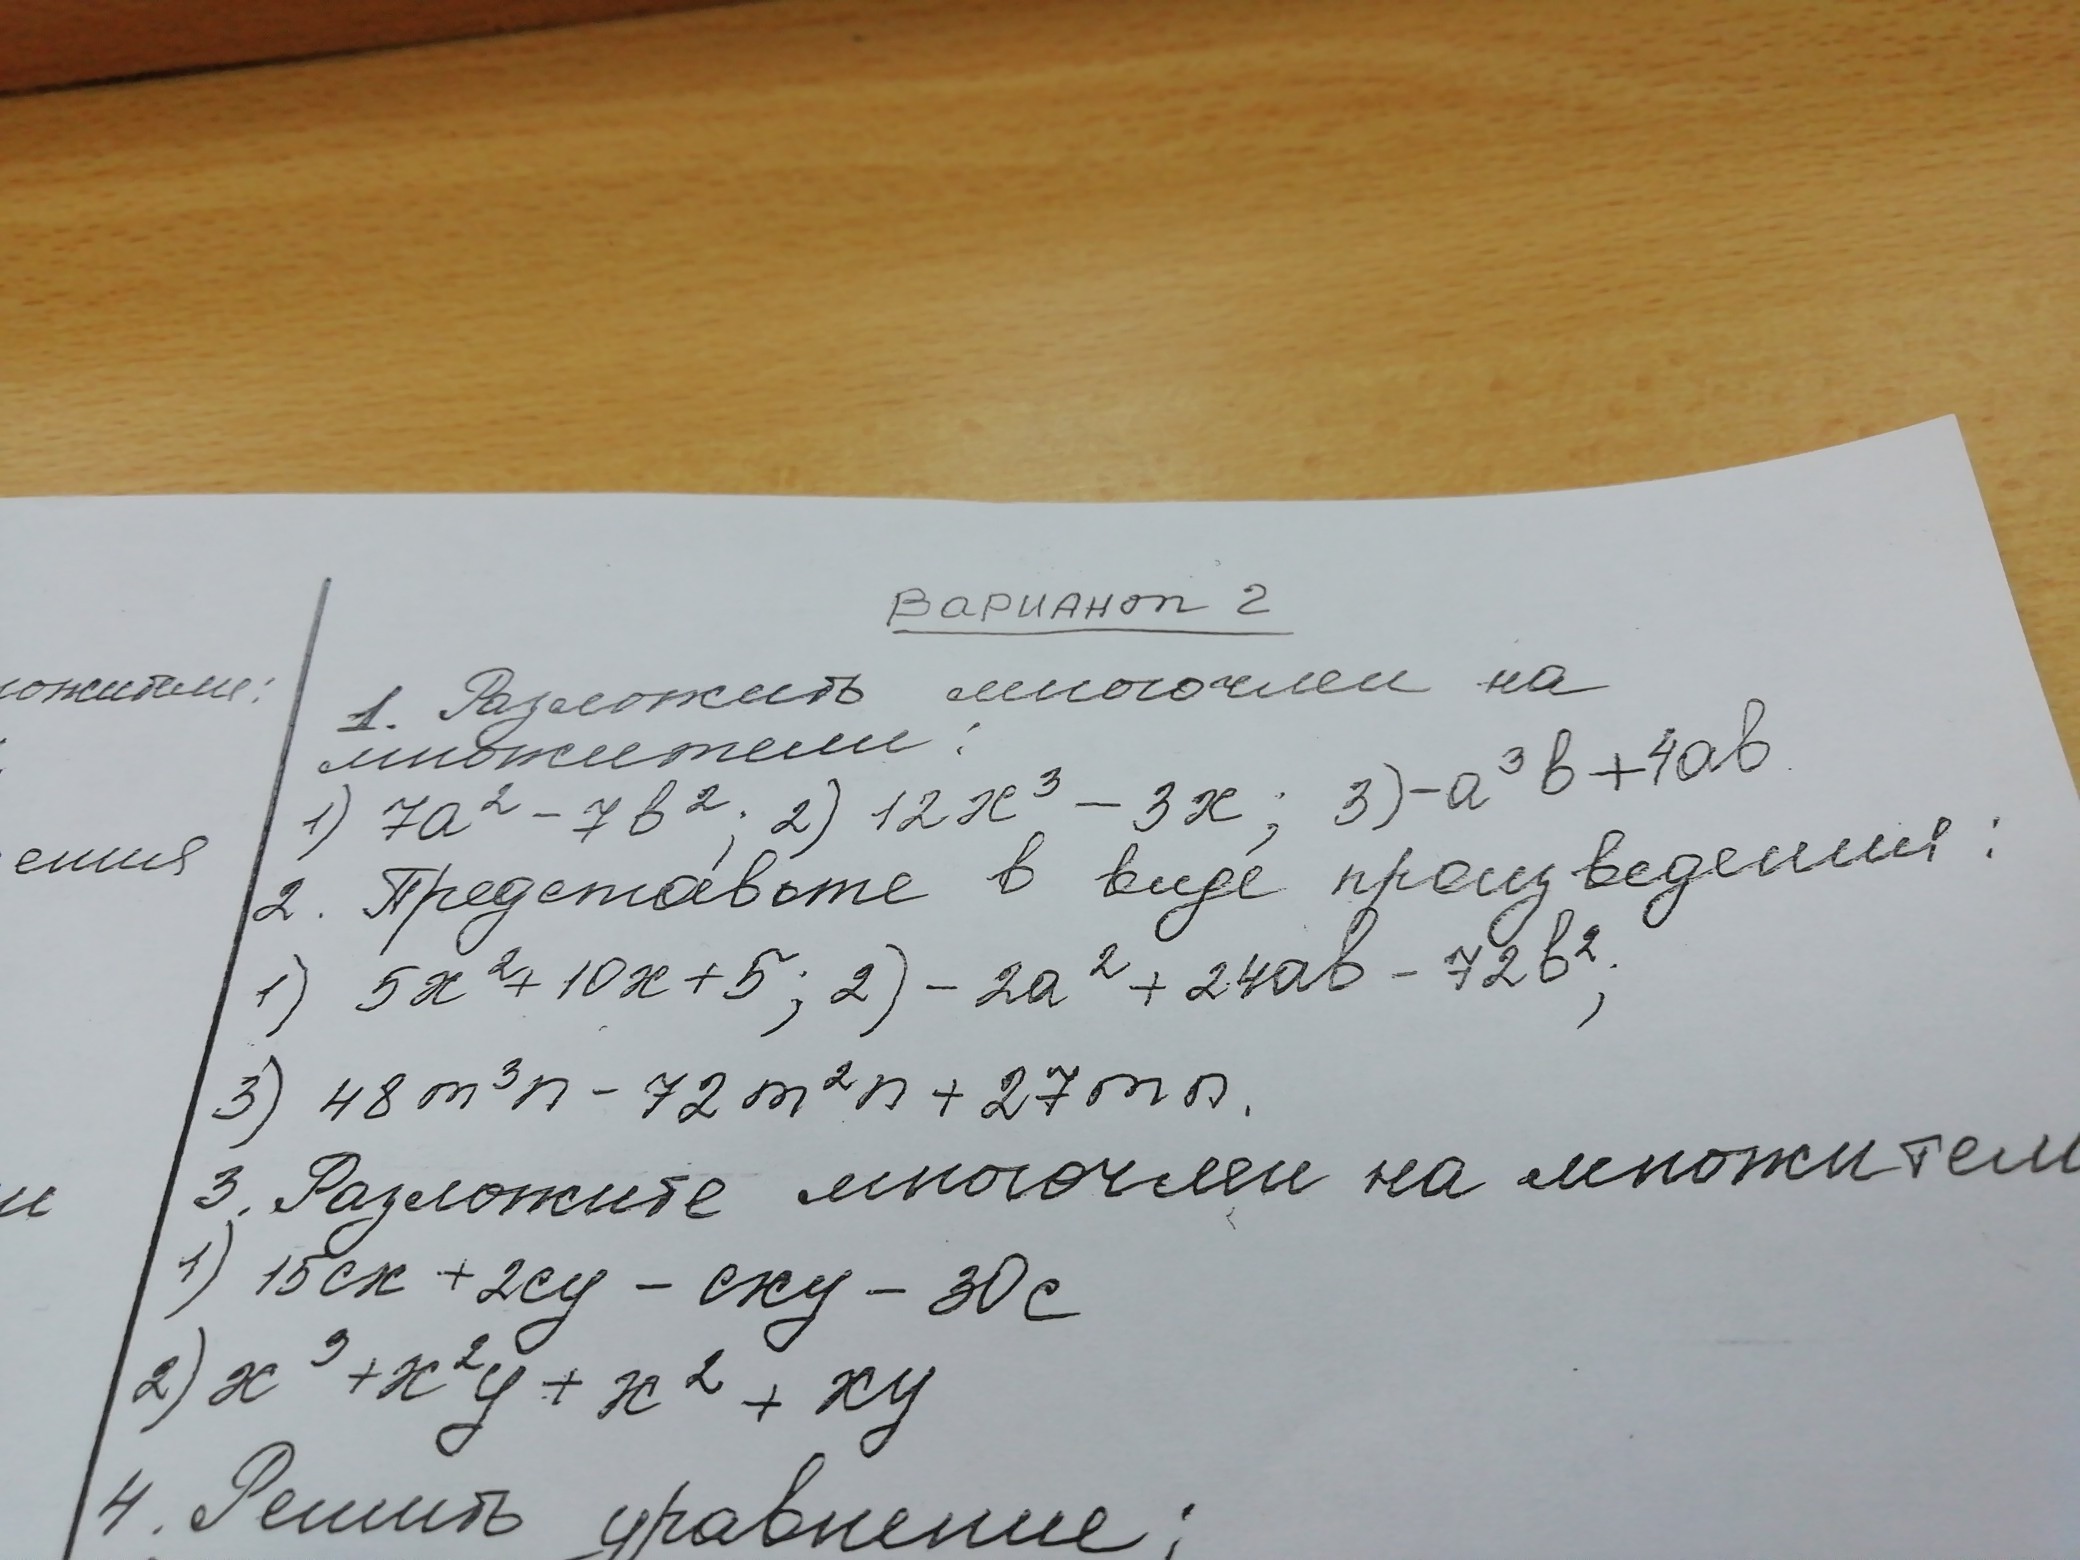 ожители:
ения
и
Вариант 2
1. Разложить многочлен на
множители:
1) 7a² - 7b²; 2) 12x³ - 3x; 3) -a³b + 4ab
2. Представьте в виде произведения:
1) 5x² + 10x + 5; 2) - 2a² + 24ab - 72b²;
3) 48m³n - 72m²n + 27mn.
3. Разложите многочлен на множители
1) 15cx + 2cy - cxy - 30c
2) x³ + x²y + x² + xy
4. Решить уравнение: